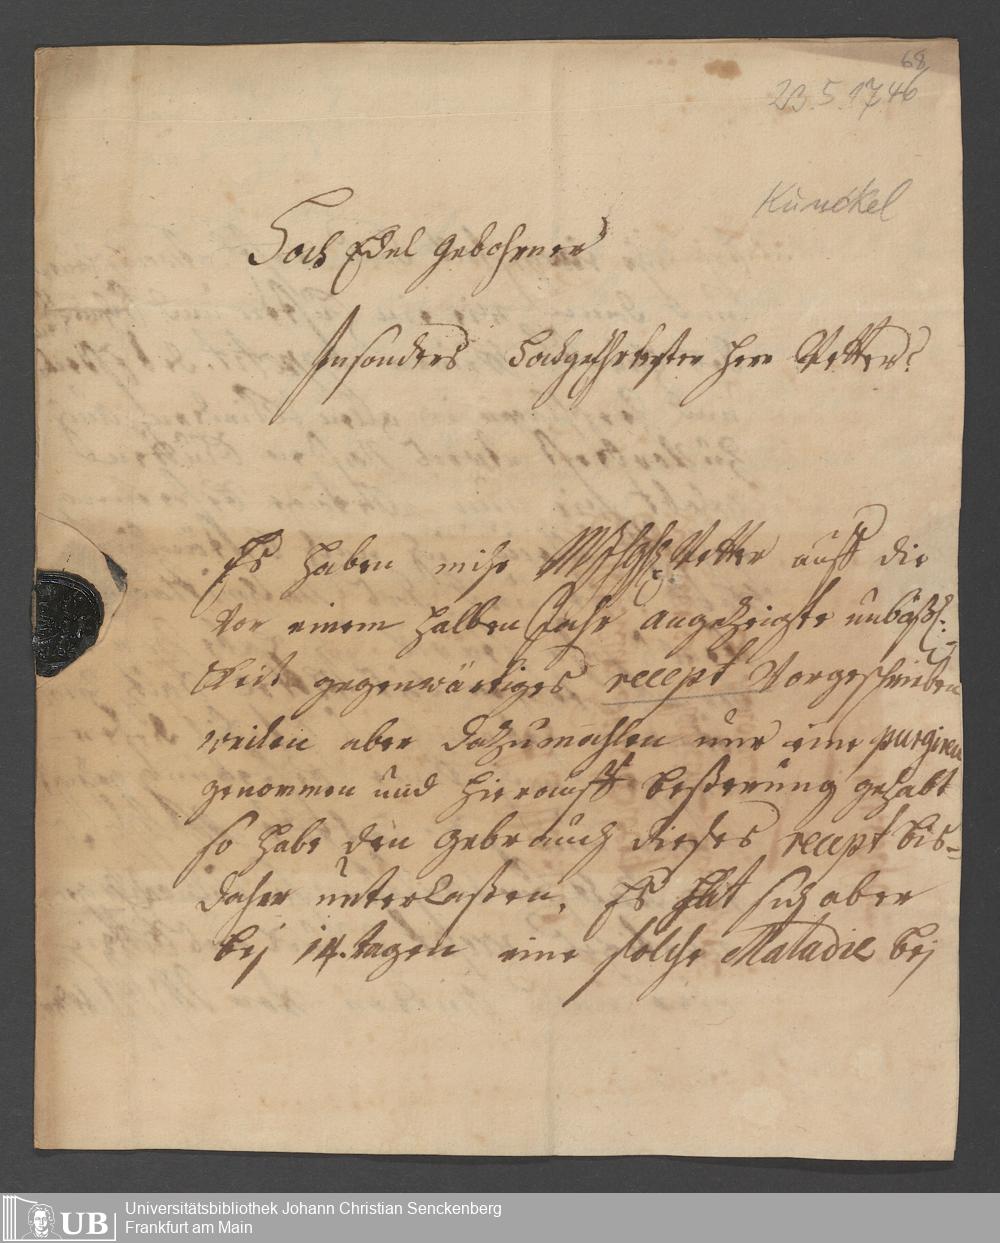 68
23.5.1746
Kunckel
Hoch Edel Gebohrner
Insonders Hochgeehrtester Herr Vetter
Es haben mihr Vetter auff die
vor einem halben Jahr angezeigte unbäßl.
keit gegenwärtiges recept Vorgeschrieben
weilen aber dazumahlen nur eine purgiren
genommen und hierauff beßerung gehabt
so habe den gebrauch dieses recept bis=
daher unterlaßen. Es hat sich aber
bej 14. tagen eine solche Maladie bej
UB
Universitätsbibliothek Johann Christian Senckenberg
Frankfurt am Main